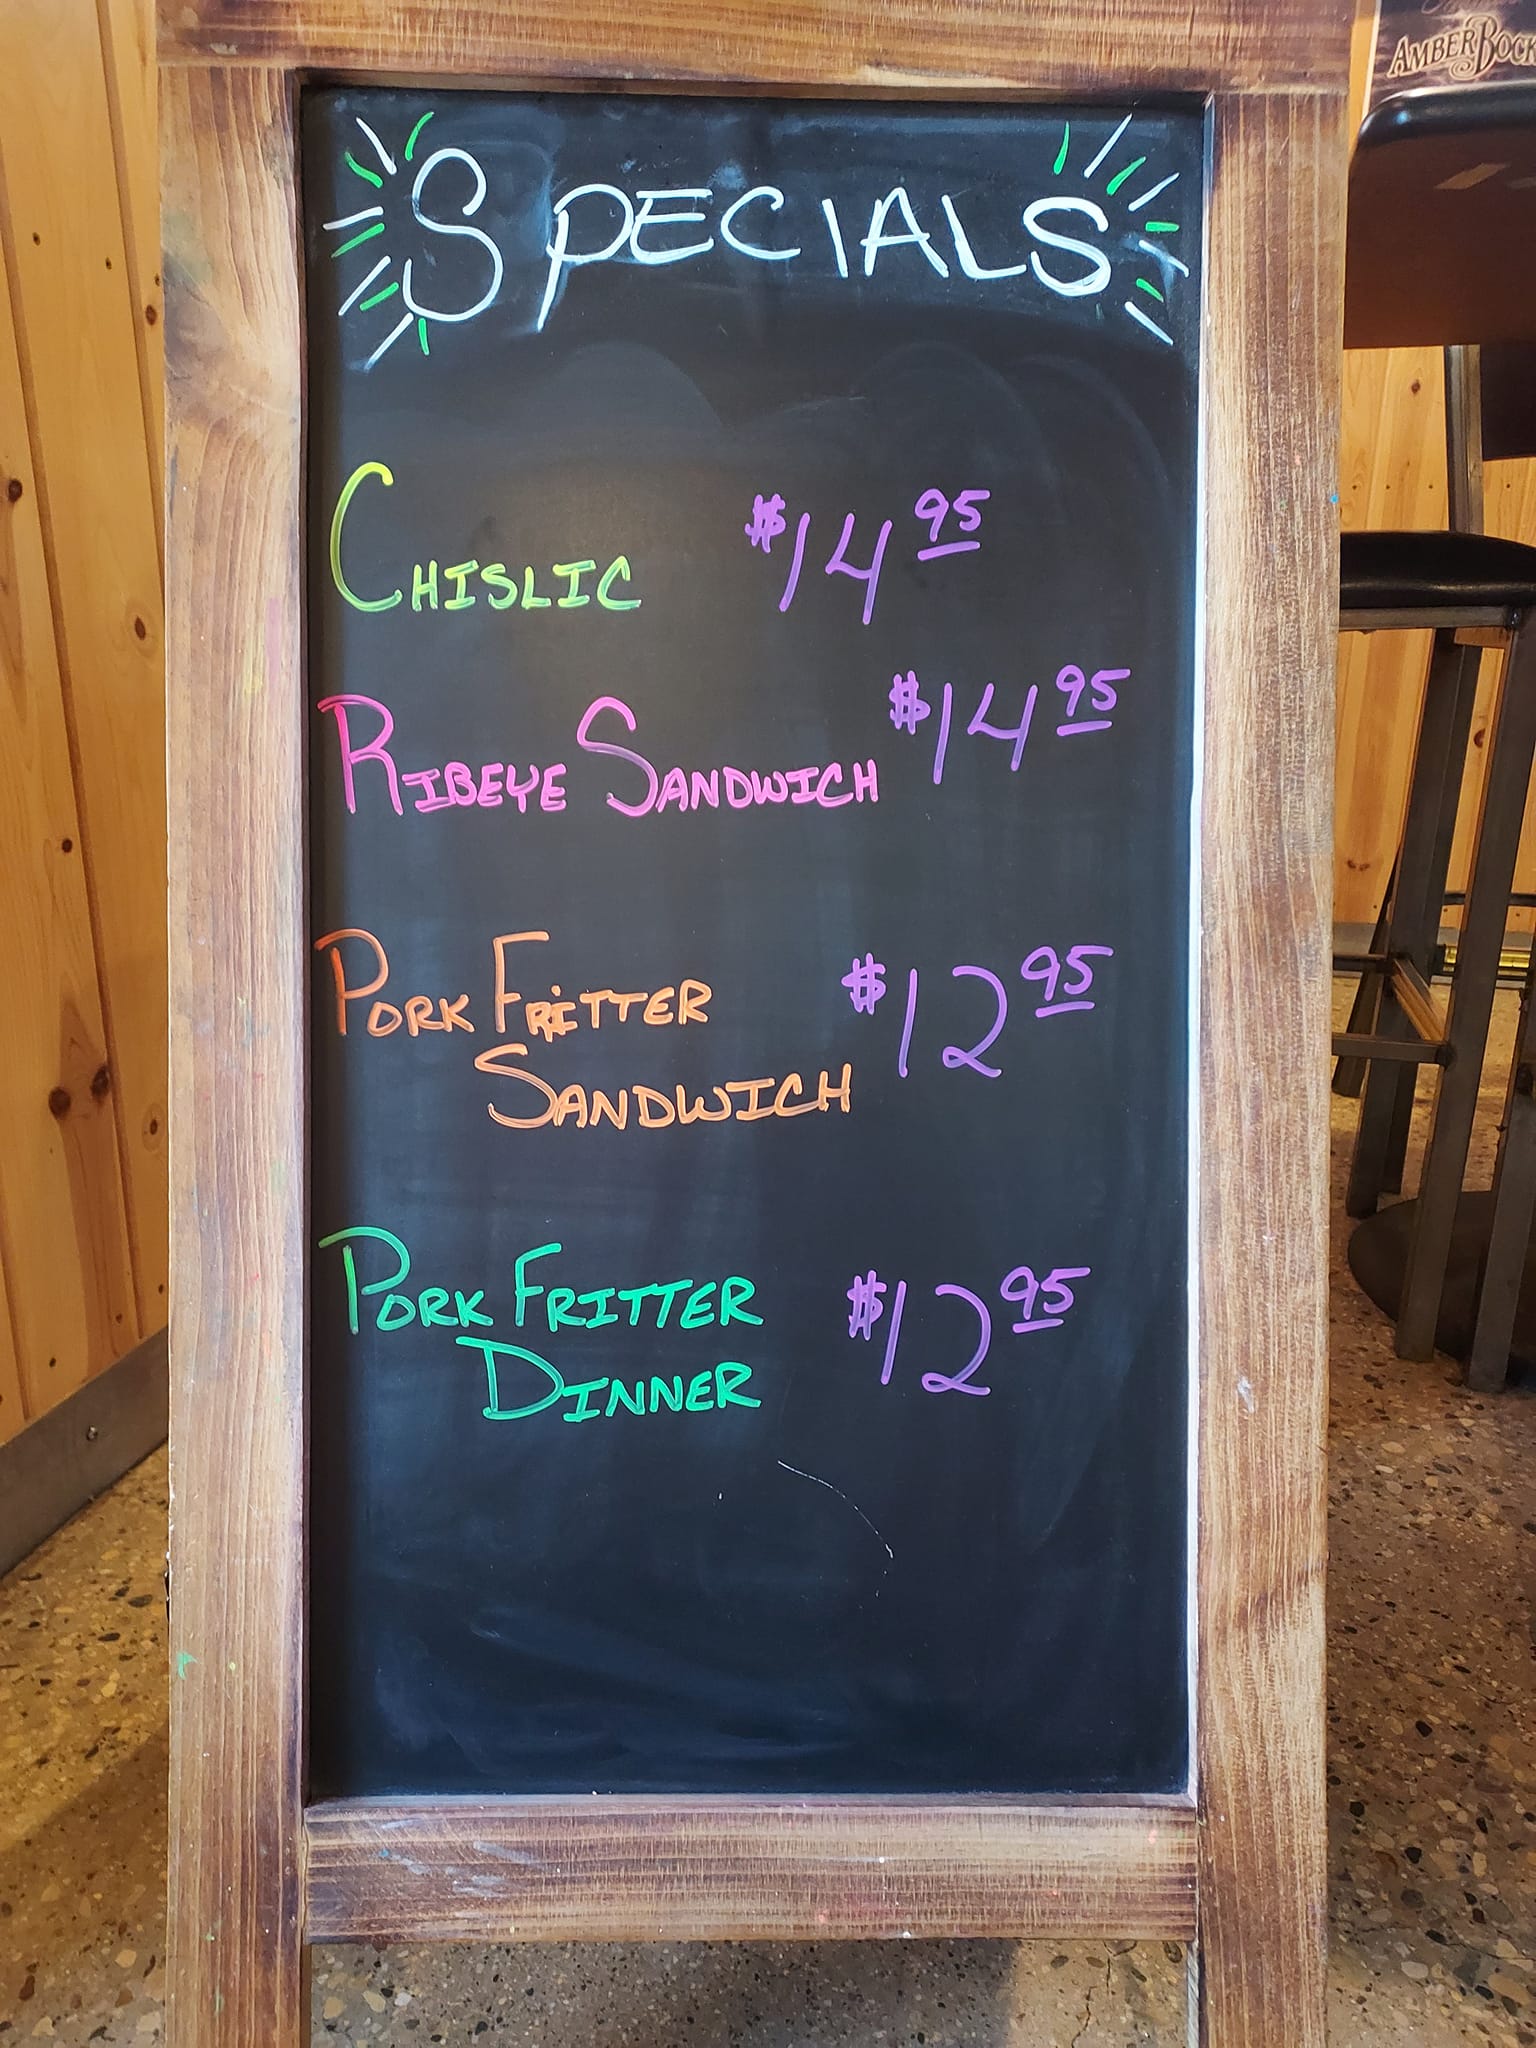 AMBERBOCK
SPECIALS
CHISLIC $14 95
RIBEYE SANDWICH $14 95
PORK FRITTER $12 95
SANDWICH
PORK FRITTER $12 95
DINNER